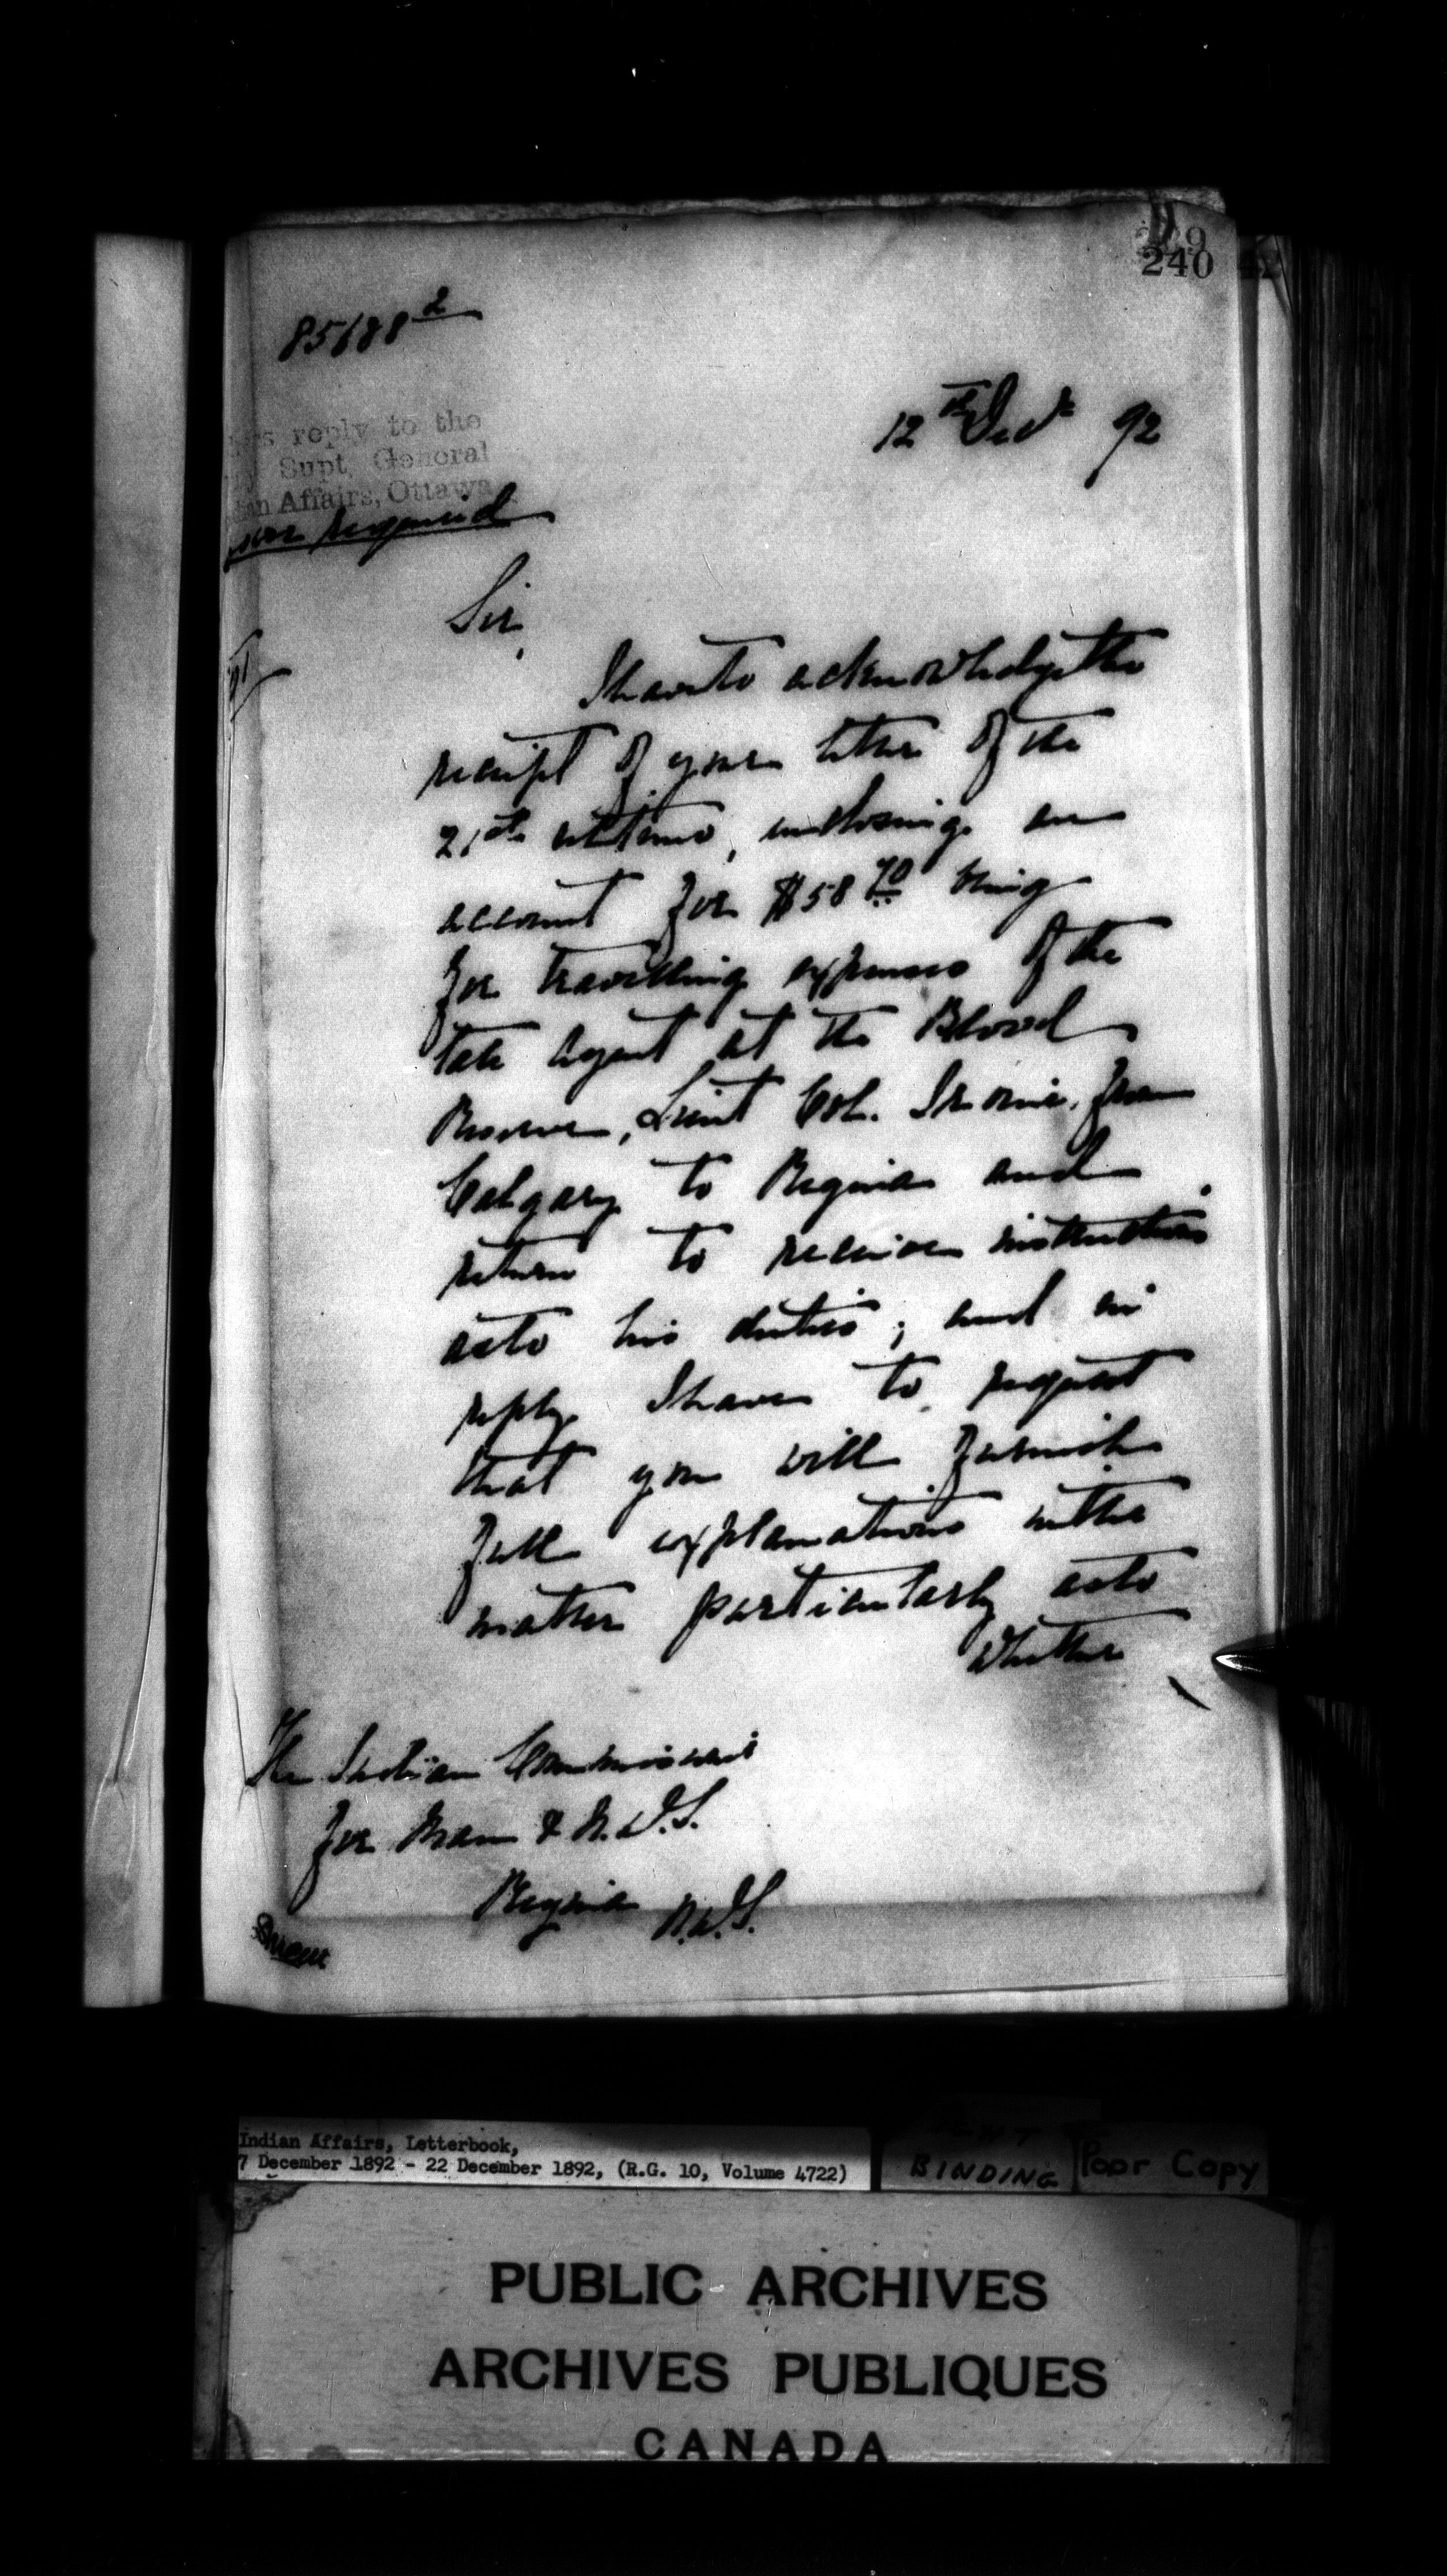 240
85188 2
12th Dec 92
reply to the
Supt. General
Affairs, Ottawa
required
Sir,
I have to acknowledge the
receipt of your letter of the
21st ultimo, enclosing an
account for $58 70 being
for travelling expenses of the
late Agent at the Blood
Reserve, Lieut Col. Irvine, from
Calgary to Regina and
return to receive instructions
as to his duties; and in
reply I have to request
that you will furnish
full explanations in the
matter particularly as to
whether
The Indian Commissioner
for Man & N.W.T.
Regina N.W.T.
Indian Affairs, Letterbook,
7 December 1892 - 22 December 1892, (R.G. 10, Volume 4722)
BINDING
Poor Copy
PUBLIC ARCHIVES
ARCHIVES PUBLIQUES
CANADA